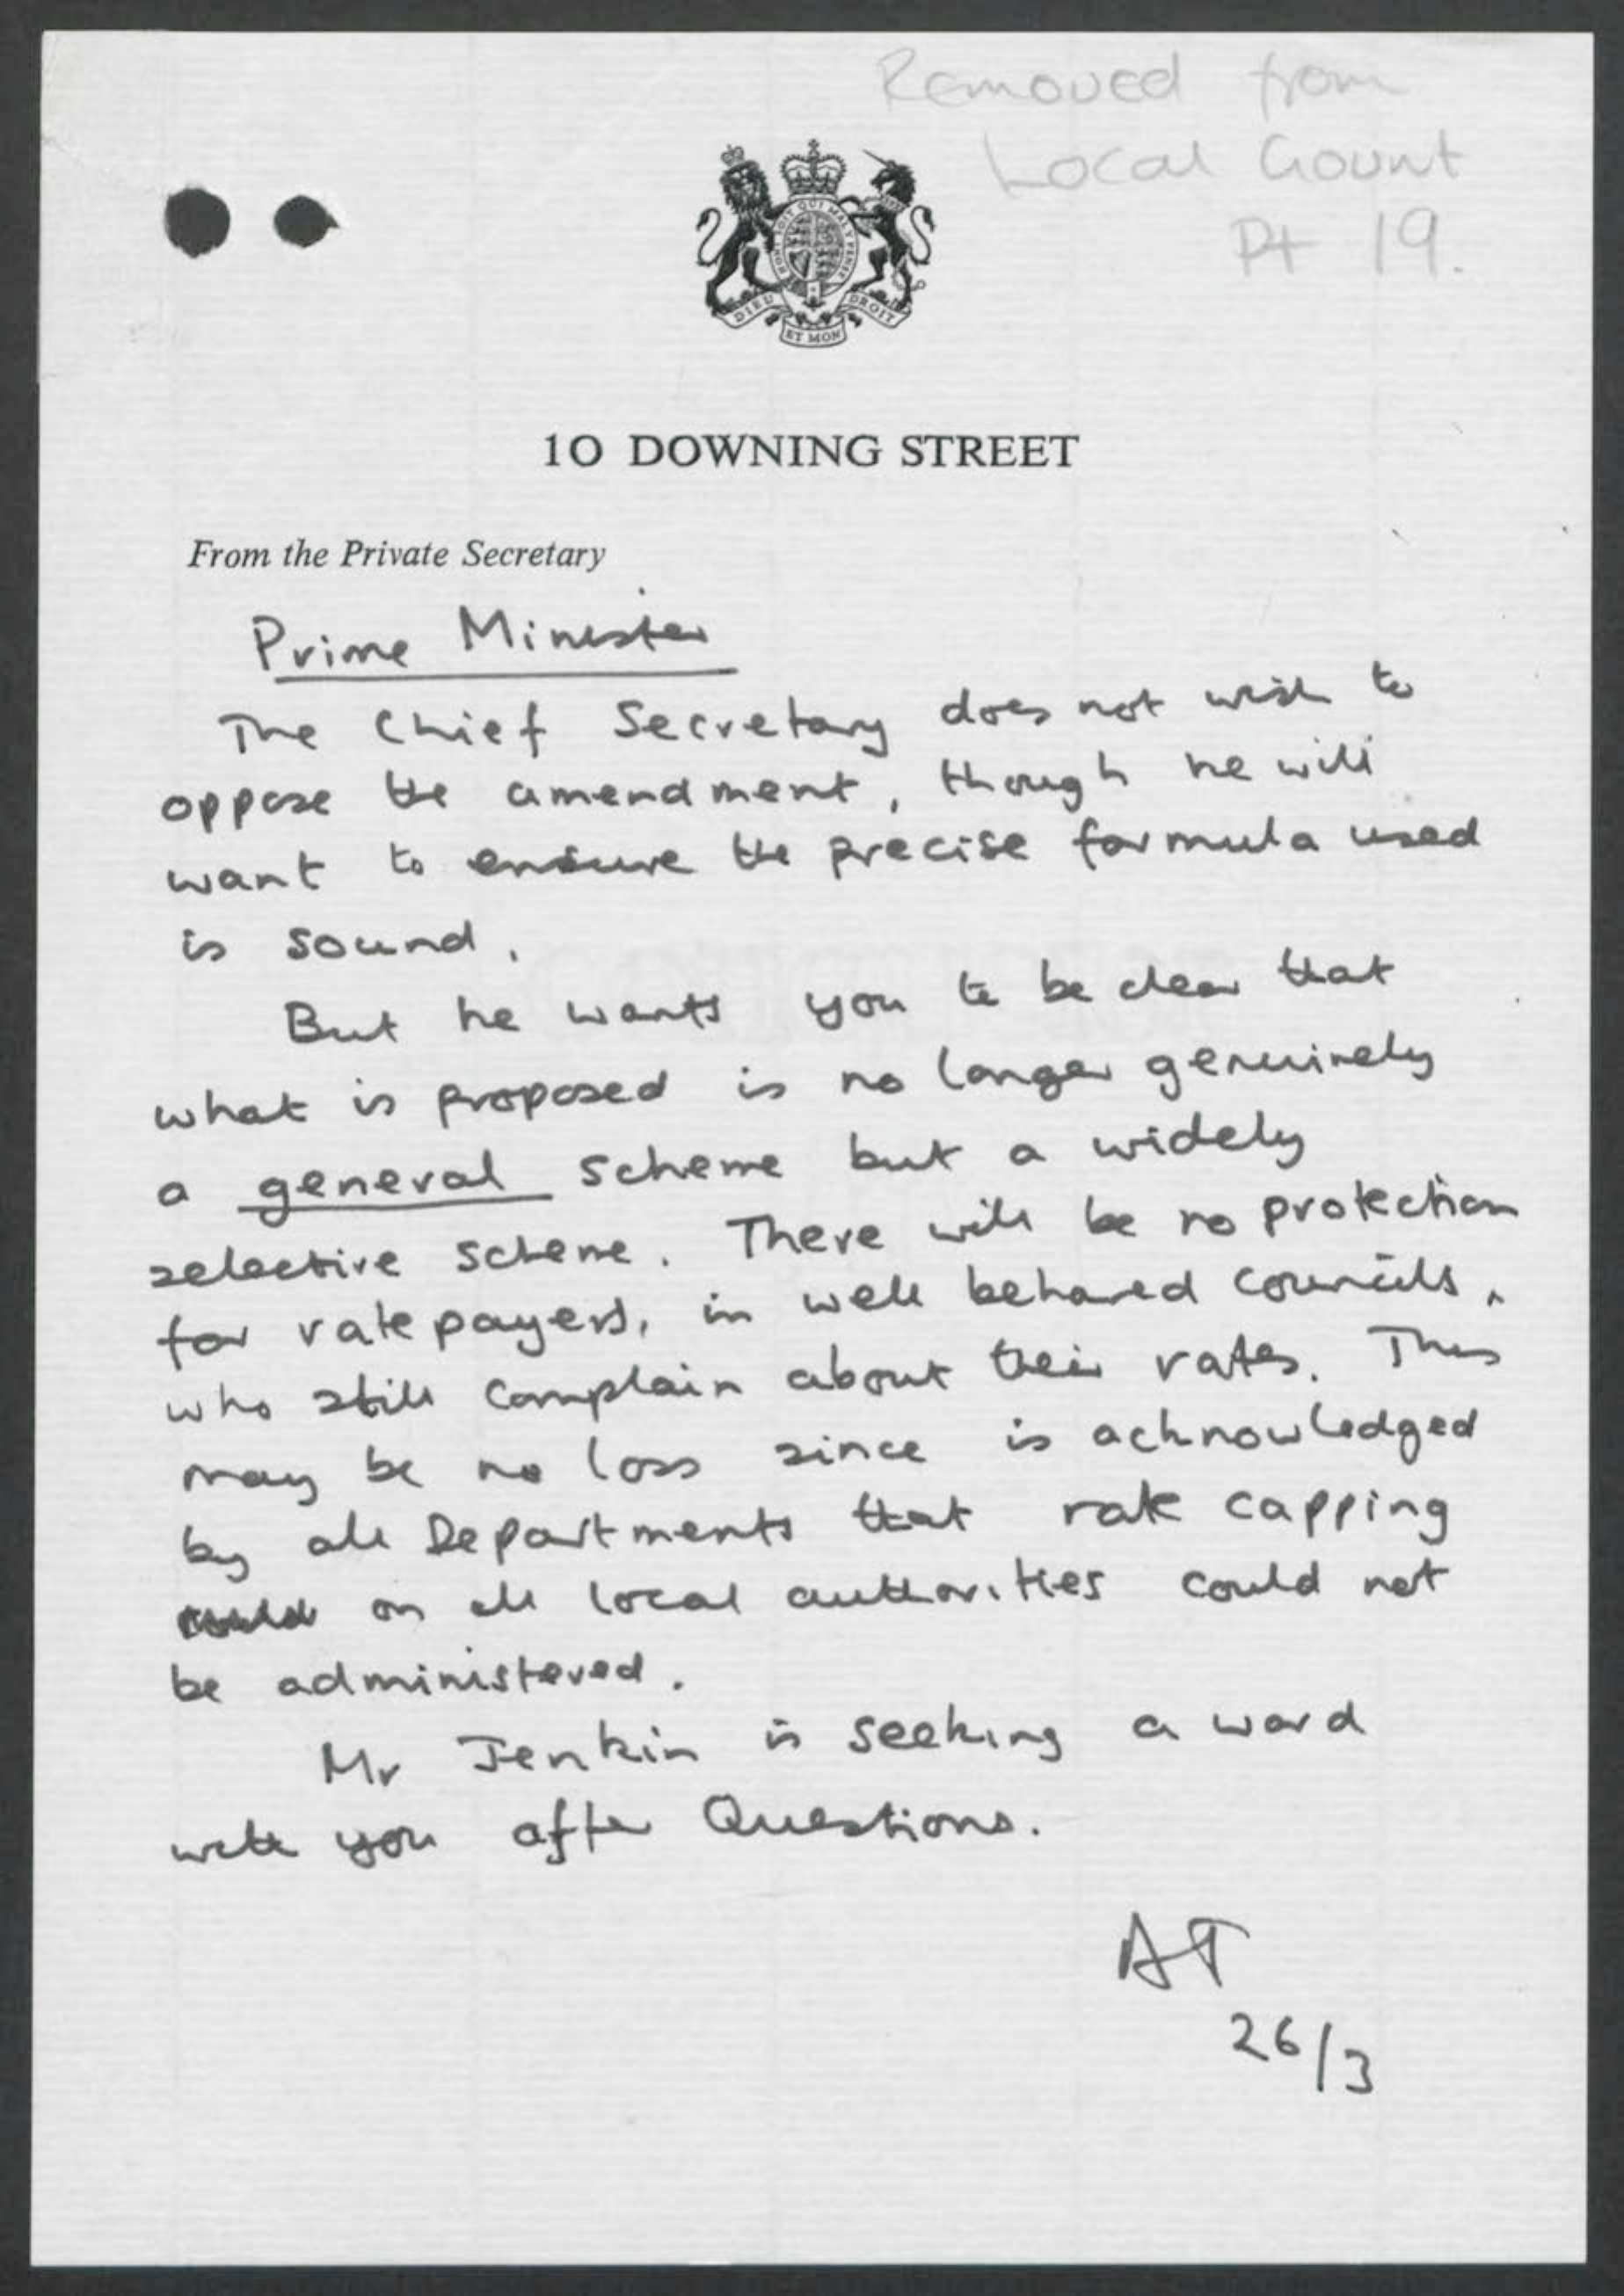 Removed from
Local Govnt
Pt 19.
HONI SOIT QUI MAL Y PENSE
DIEU ET MON DROIT
10 DOWNING STREET
From the Private Secretary
Prime Minister
The Chief Secretary does not wish to
oppose the amendment, though he will
want to ensure the precise formula used
is sound.
But he wants you to be clear that
what is proposed is no longer genuinely
a general scheme but a widely
selective scheme. There will be no protection
for ratepayers, in well behaved councils,
who still complain about their rates. This
may be no loss since is acknowledged
by all Departments that rate capping
on all local authorities could not
be administered.
Mr Jenkin is seeking a word
with you after Questions.
AT
26/3